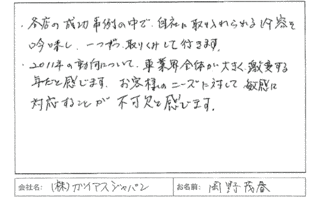 ・各店の成功事例の中で、自社に取り入れられる内容を
吟味し、一つずつ取りくみして行きます。
・2011年の動向について、車業界全体が大きく激変する
年だと感じます。お客様のニーズに対して敏感に
対応することが不可欠と感じます。
会社名: (株)ガイアスジャパン お名前: 岡野茂春